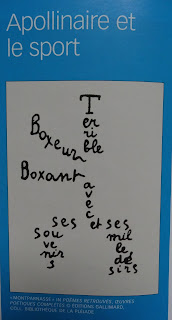 Apollinaire et
le sport
Terrible
Boxeur
Boxant
avec
ses
souvenirs
et
ses
mille
désirs
«MONTPARNASSE» IN POÈMES RETROUVÉS, ŒUVRES
POÉTIQUES COMPLÈTES © ÉDITIONS GALLIMARD,
COLL. BIBLIOTHÈQUE DE LA PLÉIADE